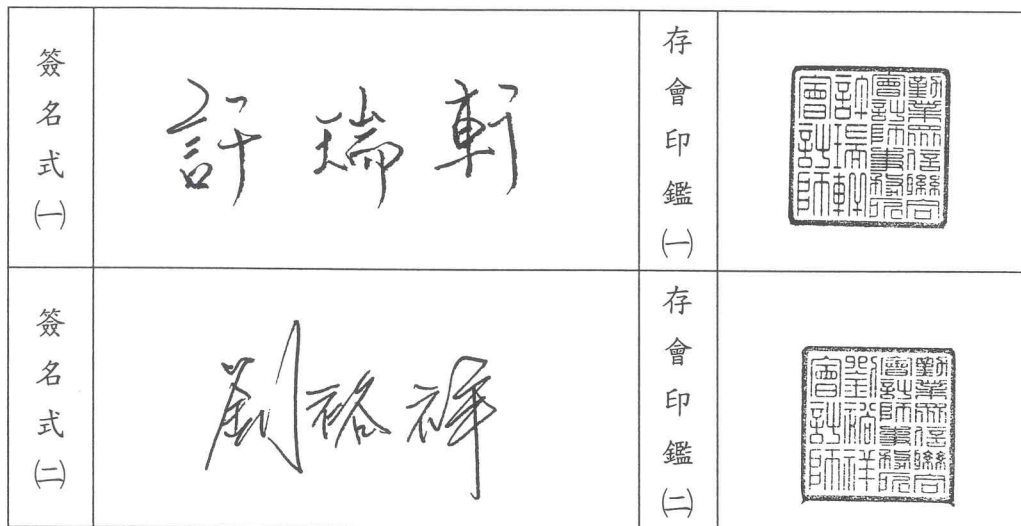 簽名式㈠
許瑞軒
存會印鑑㈠
勤業眾信聯合
會計師事務所
許瑞軒
會計師
簽名式㈡
劉裕祥
存會印鑑㈡
勤業眾信聯合
會計師事務所
劉裕祥
會計師